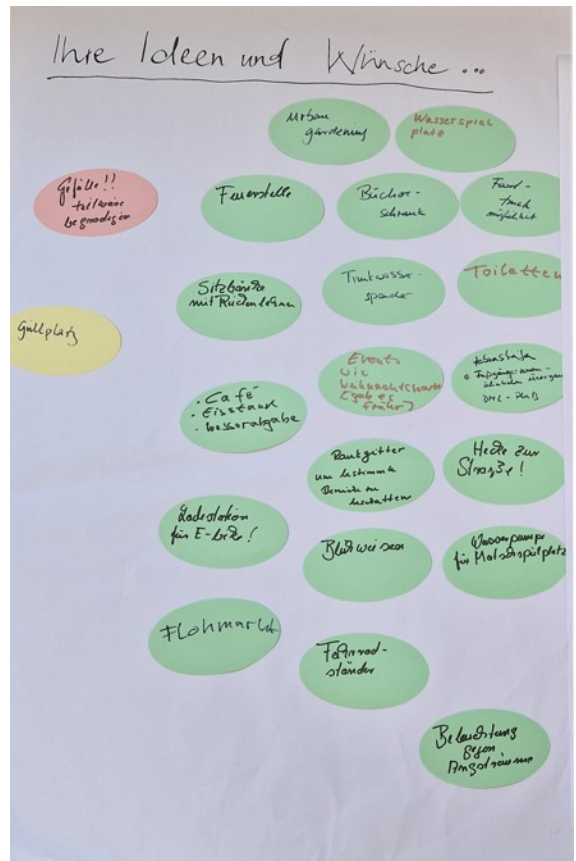 Ihre Ideen und Wünsche...
Urban
gardening
Wasserspiel
platz
Gefälle!!
teilweise
begradigen
Feuerstelle
Bücher-
schrank
Food-
truck
möglichkeit
Sitzbänke
mit Rückenlehnen
Trinkwasser-
spender
Toiletten
Grillplatz
Events
wie
Weihnachtsmarkt
(gab es
früher)
DMC-Platz
· Café
· Eisstand
· Wasserabgabe
Rankgitter
um bestimmte
Bereiche zu
beschatten
Hecke zur
Straße!
Ladestation
für E-bike!
Blühwiesen
Wasserpumpe
für Matschspielplatz
Flohmarkt
Fahrrad-
ständer
Beleuchtung
gegen
Angsträume